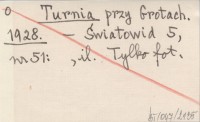 o Turnia przy Grotach.
1928. — Światowid 5,
nr 51: , il. Tylko fot.